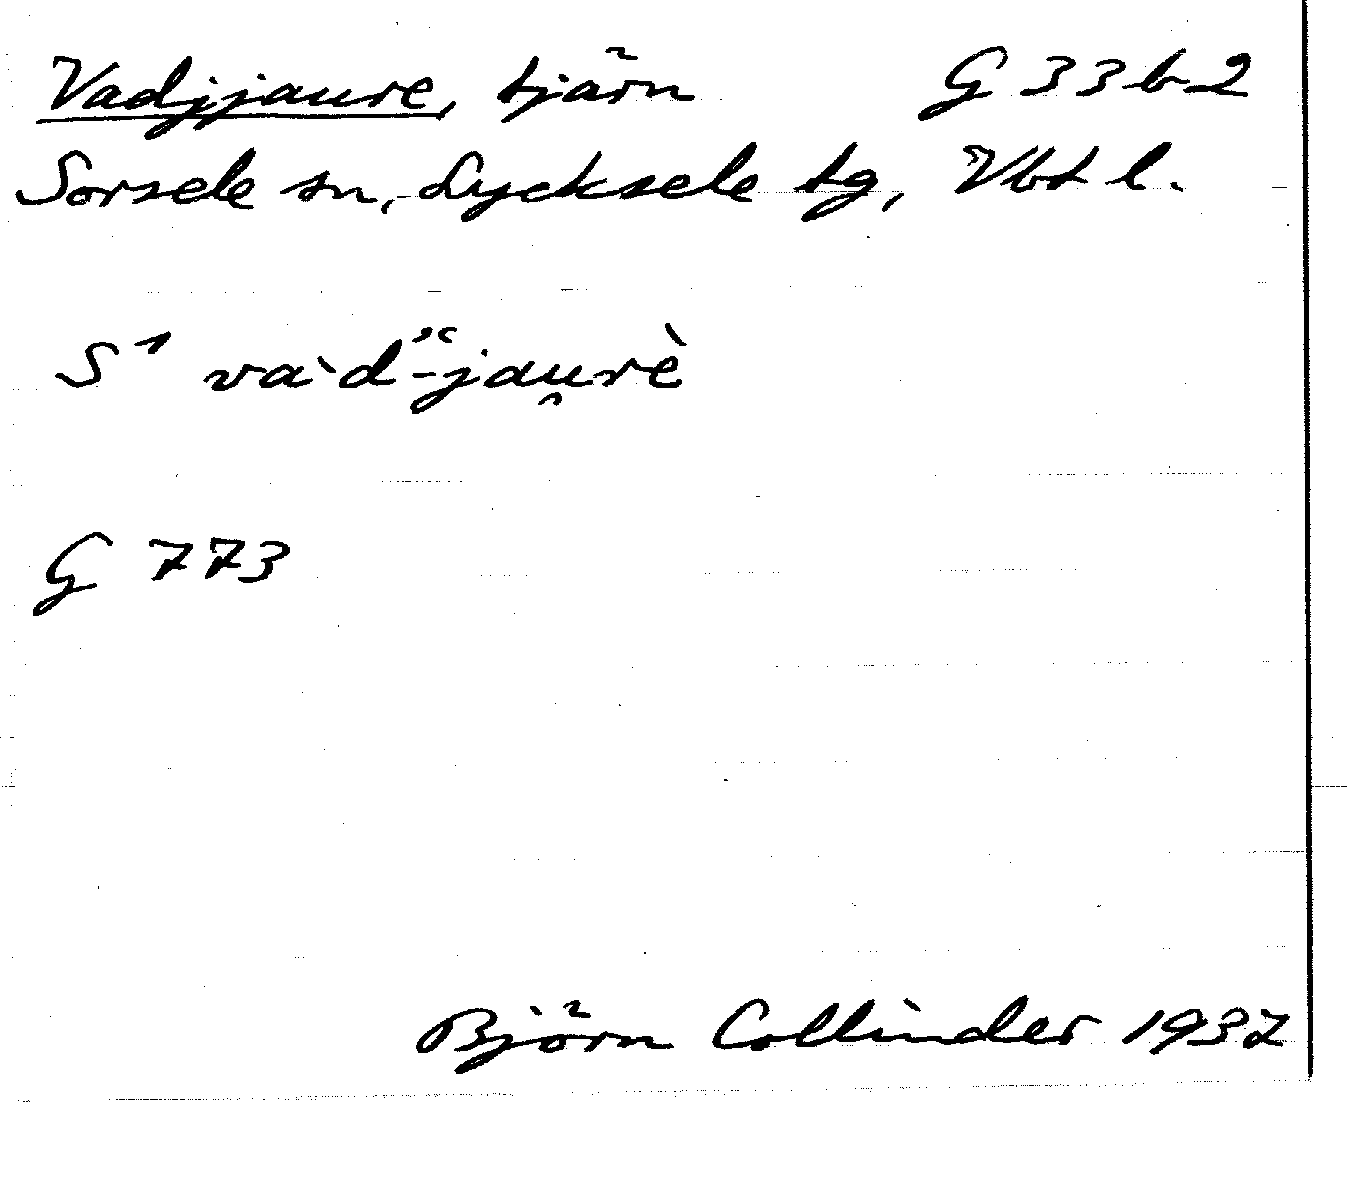 Vadjjaure, tjärn G 33 b 2
Sorsele sn, Lycksele tg, Vbt l.
S¹ vaˋd᾽῾-jau̯rè
G 773
Björn Collinder 1937